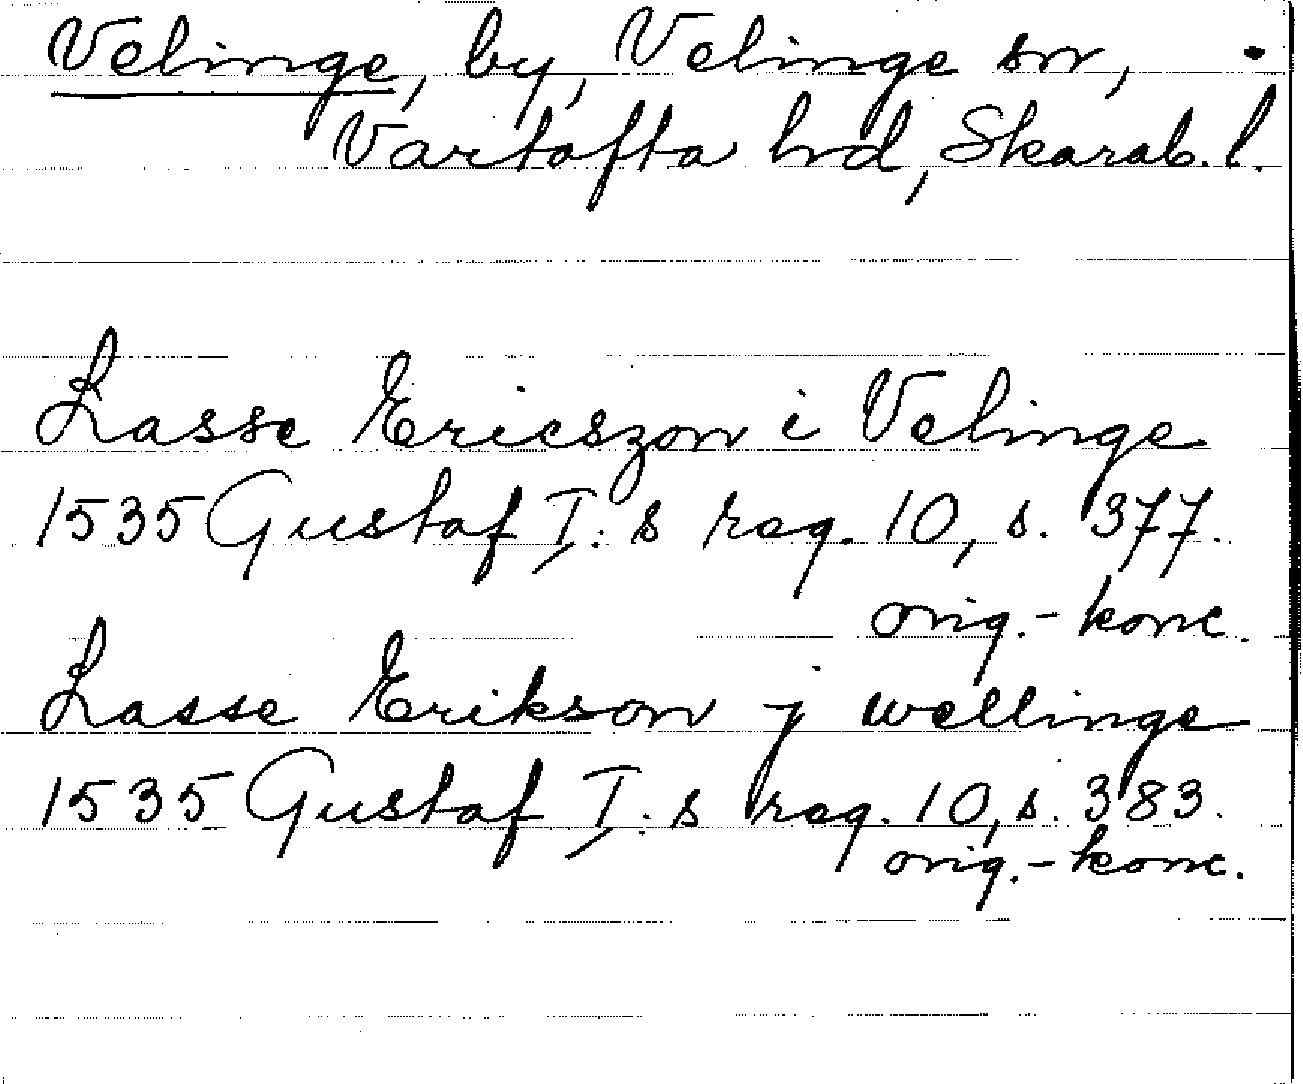 Velinge, by, Velinge sn,
Vartofta hrd, Skarab. l.
Lasse Ericszon i Velinge
1535 Gustaf I:s reg. 10, s. 377.
orig.-konc.
Lasse Erikson j wellinge
1535 Gustaf I:s reg. 10, s. 383.
orig.-konc.